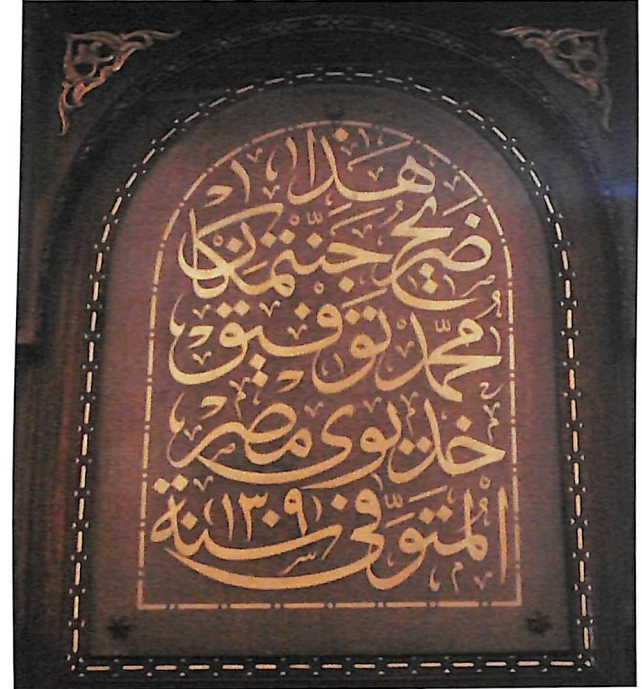 هذا
ضريح جنتمكان
محمد توفيق
خديوى مصر
المتوفى سنة (١٣٠٩)